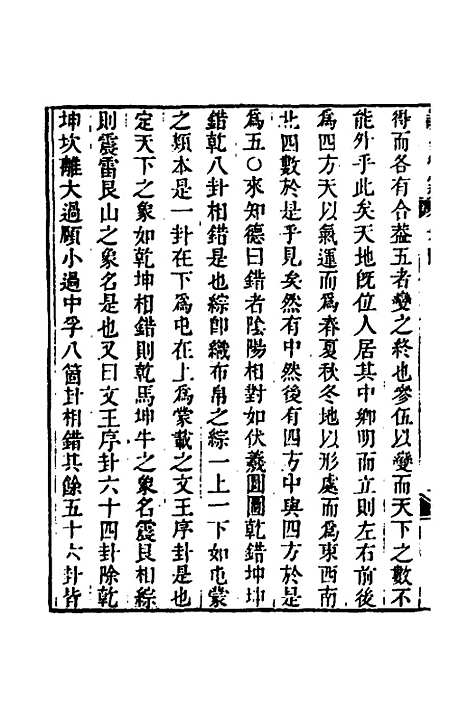 得而各有合葢五者變之終也參伍以變而天下之數不
能外乎此矣天地旣位人居其中鄉明而立則左右前後
爲四方天以氣運而爲春夏秋冬地以形處而爲東西南
北四數於是乎見矣然有中然後有四方中與四方於是
爲五○來知德曰錯者陰陽相對如伏羲圓圖乾錯坤坤
錯乾八卦相錯是也綜卽織布帛之綜一上一下如屯蒙
之類本是一卦在下爲屯在上爲蒙載之文王序卦是也
定天下之象如乾坤相錯則乾馬坤牛之象名震艮相綜
則震雷艮山之象名是也又曰文王序卦六十四卦除乾
坤坎離大過頤小過中孚八箇卦相錯其餘五十六卦皆